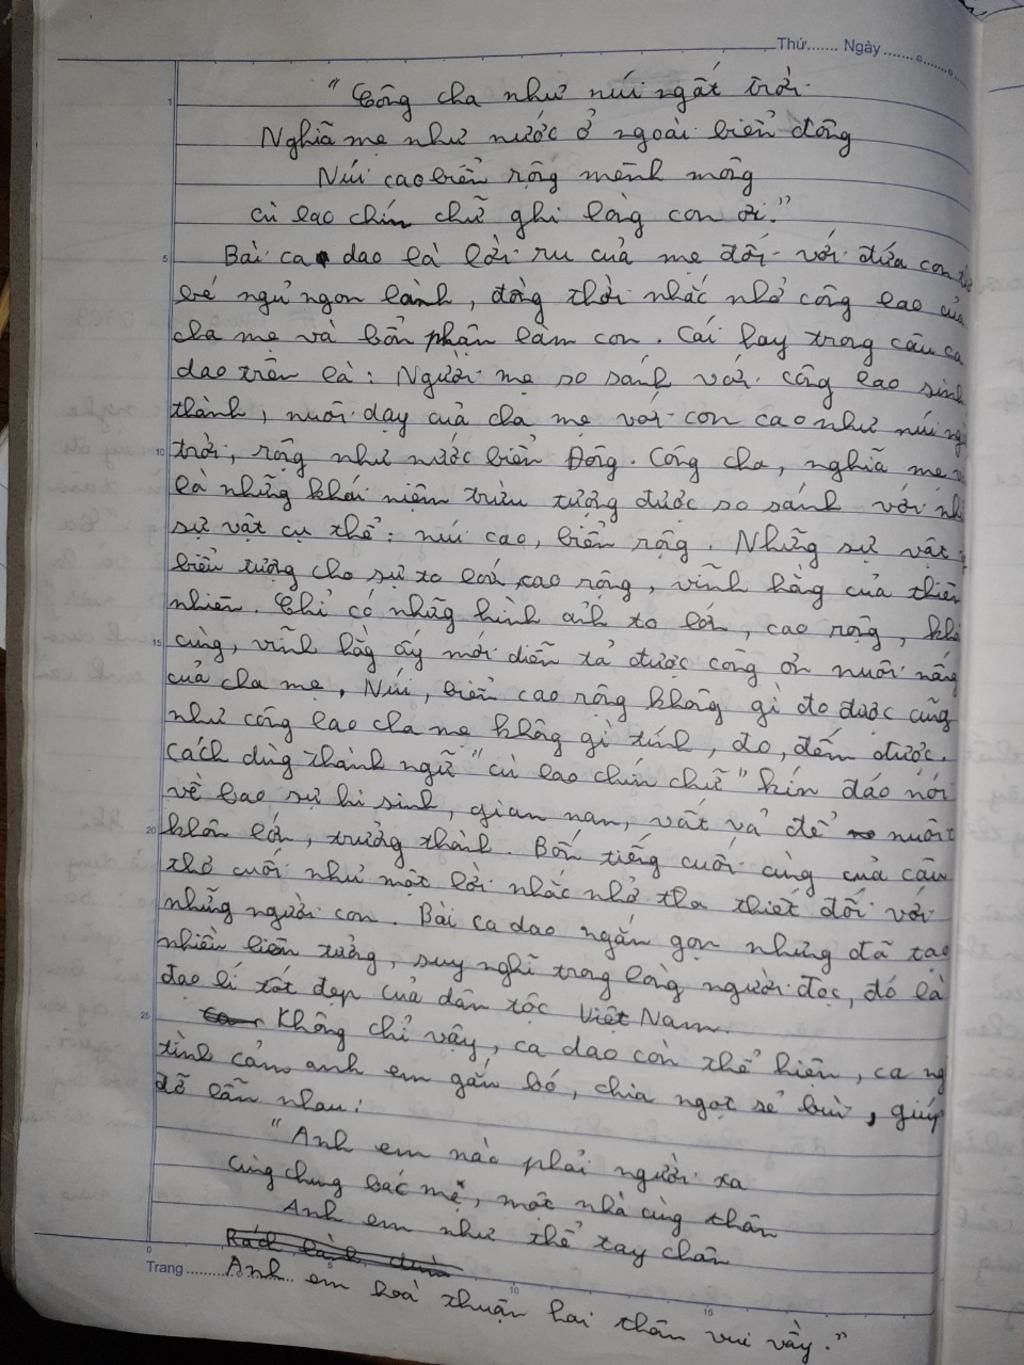 Thứ....... Ngày.......
"Công cha như núi ngất trời
Nghĩa mẹ như nước ở ngoài biển đông
Núi cao biển rộng mênh mông
cù lao chín chữ ghi lòng con ơi."
Bài ca dao là lời ru của mẹ đối với đứa con
bé ngủ ngon lành, đồng thời nhắc nhở công lao của
cha mẹ và bổn phận làm con. Cái hay trong câu ca
dao trên là: Người mẹ so sánh với công lao sinh
thành, nuôi dạy của cha mẹ với con cao như núi
trời, rộng như nước biển Đông. Công cha, nghĩa mẹ
là những khái niệm trừu tượng được so sánh với
sự vật cụ thể: núi cao, biển rộng. Những sự vật
biểu tượng cho sự to lớn, cao rộng, vĩnh hằng của thiên
nhiên. Chỉ có những hình ảnh to lớn, cao rộng,
cùng, vĩnh hằng ấy mới diễn tả được công ơn nuôi nấng
của cha mẹ. Núi, biển cao rộng không gì đo được cũng
như công lao cha mẹ không gì tính, đo, đếm được.
cách dùng thành ngữ "cù lao chín chữ" kín đáo nói
về bao sự hi sinh, gian nan, vất vả để nuôi
khôn lớn, trưởng thành. Bốn tiếng cuối cùng của câu
thơ cuối như một lời nhắc nhở tha thiết đối với
những người con. Bài ca dao ngắn gọn nhưng đã tạo
nhiều liên tưởng, suy nghĩ trong lòng người đọc, đó là
đạo lí tốt đẹp của dân tộc Việt Nam.
Không chỉ vậy, ca dao còn thể hiện, ca
tình cảm anh em gắn bó, chia ngọt sẻ bùi, giúp
đỡ lẫn nhau:
"Anh em nào phải người xa
cùng chung bác mẹ, một nhà cùng thân
Anh em như thể tay chân
Rách lành đùm
Anh em hoà thuận hai thân vui vầy."
Trang